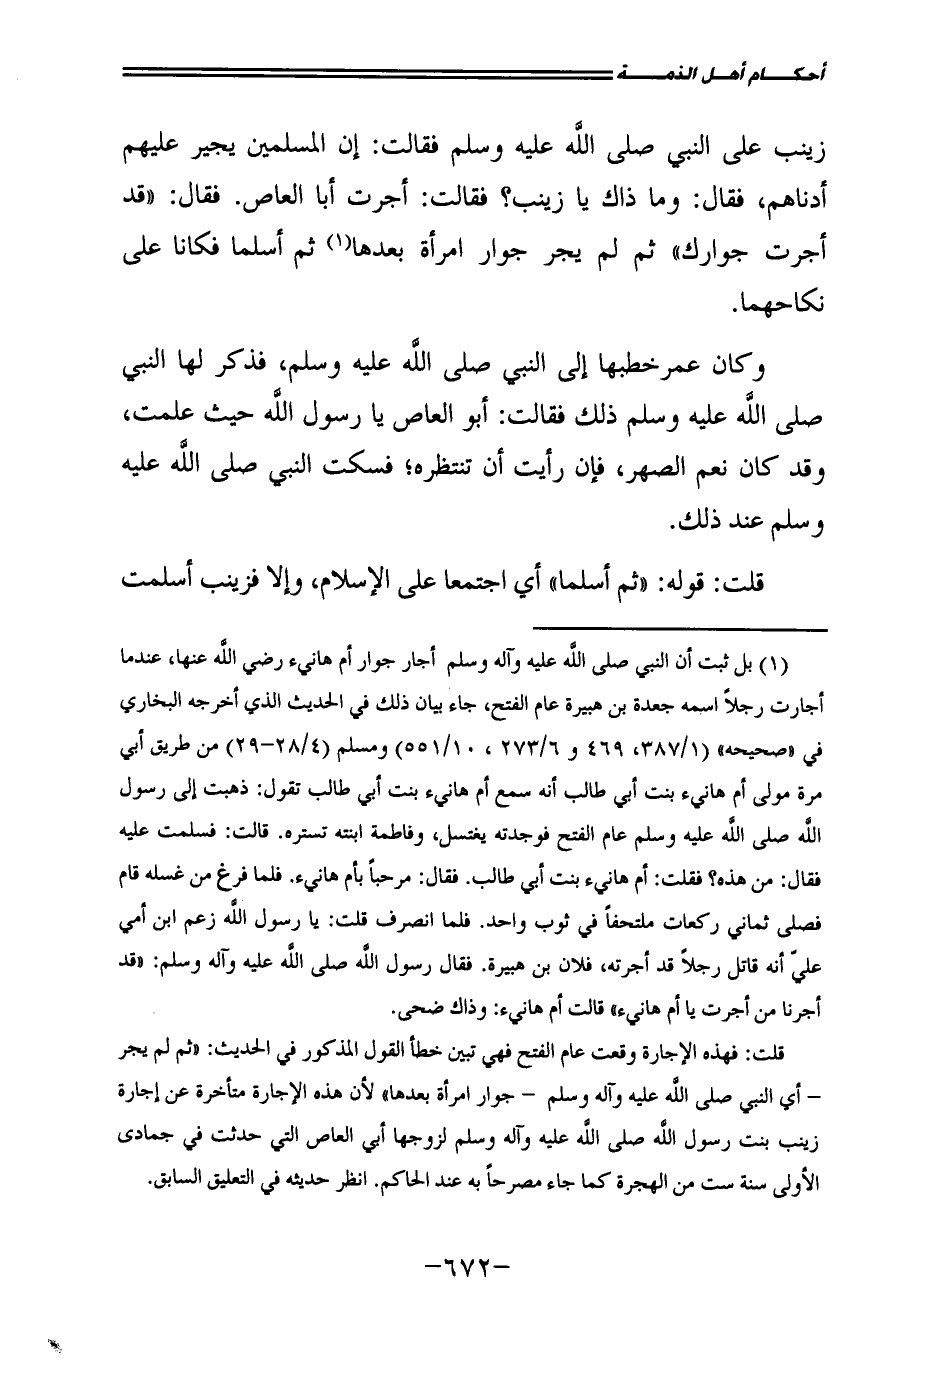 أحكـــام أهـل الذمـــة
زينب على النبي صلى الله عليه وسلم فقالت: إن المسلمين يجير عليهم
أدناهم، فقال: وما ذاك يا زينب؟ فقالت: أجرت أبا العاص. فقال: «قد
أجرت جوارك» ثم لم يجر جوار امرأة بعدها(١) ثم أسلما فكانا على
نكاحهما.
وكان عمر خطبها إلى النبي صلى الله عليه وسلم، فذكر لها النبي
صلى الله عليه وسلم ذلك فقالت: أبو العاص يا رسول الله حيث علمت،
وقد كان نعم الصهر، فإن رأيت أن تنتظره؛ فسكت النبي صلى الله عليه
وسلم عند ذلك.
قلت: قوله: «ثم أسلما» أي اجتمعا على الإسلام، وإلا فزينب أسلمت
(١) بل ثبت أن النبي صلى الله عليه وآله وسلم أجار جوار أم هانيء رضي الله عنها، عندما
أجارت رجلاً اسمه جعدة بن هبيرة عام الفتح، جاء بيان ذلك في الحديث الذي أخرجه البخاري
في «صحيحه» (٣٨٧/١، ٤٦٩ و ٢٧٣/٦ ، ٥٥١/١٠) ومسلم (٢٨/٤-٢٩) من طريق أبي
مرة مولى أم هانيء بنت أبي طالب أنه سمع أم هانيء بنت أبي طالب تقول: ذهبت إلى رسول
الله صلى الله عليه وسلم عام الفتح فوجدته يغتسل، وفاطمة ابنته تستره. قالت: فسلمت عليه
فقال: من هذه؟ فقلت: أم هانيء بنت أبي طالب. فقال: مرحباً بأم هانيء. فلما فرغ من غسله قام
فصلى ثماني ركعات ملتحفاً في ثوب واحد. فلما انصرف قلت: يا رسول الله زعم ابن أمي
عليّ أنه قاتل رجلاً قد أجرته، فلان بن هبيرة. فقال رسول الله صلى الله عليه وآله وسلم: «قد
أجرنا من أجرت يا أم هانيء» قالت أم هانيء: وذاك ضحى.
قلت: فهذه الإجارة وقعت عام الفتح فهي تبين خطأ القول المذكور في الحديث: «ثم لم يجر
– أي النبي صلى الله عليه وآله وسلم – جوار امرأة بعدها» لأن هذه الإجارة متأخرة عن إجارة
زينب بنت رسول الله صلى الله عليه وآله وسلم لزوجها أبي العاص التي حدثت في جمادى
الأولى سنة ست من الهجرة كما جاء مصرحاً به عند الحاكم. انظر حديثه في التعليق السابق.
–٦٧٢–